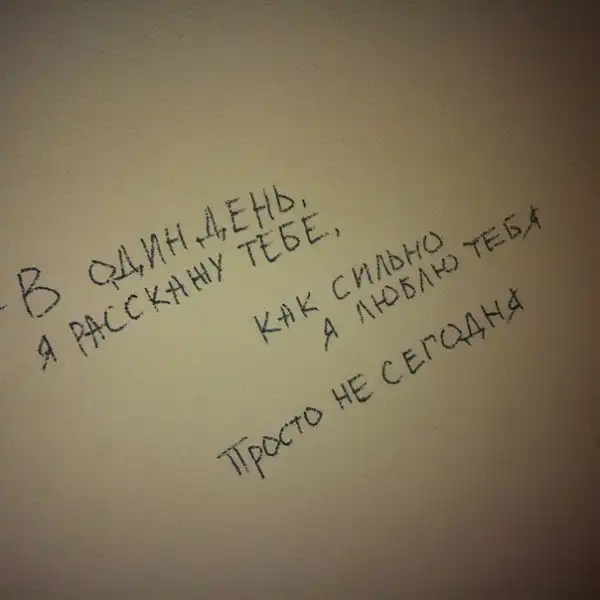 - В ОДИН ДЕНЬ,
Я РАССКАЖУ ТЕБЕ,
КАК СИЛЬНО
Я ЛЮБЛЮ ТЕБЯ
ПРОСТО НЕ СЕГОДНЯ